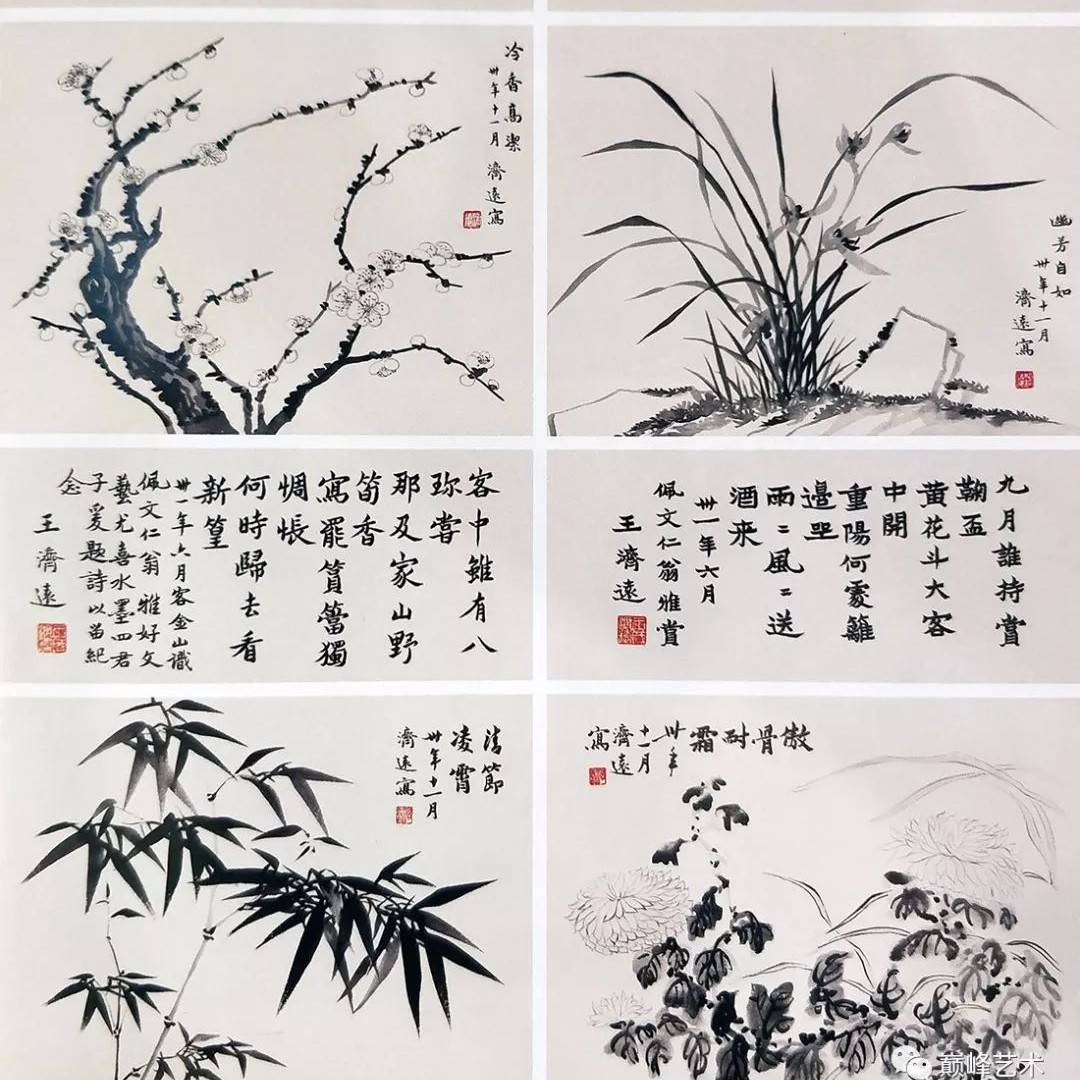 冷香高潔
卅年十一月
濟遠寫
幽芳自如
卅年十一月
濟遠寫
客中雖有八
珍嘗
那及家山野
筍香
寫罷篔簹獨
惆悵
何時歸去看
新篁
卅一年六月客金山識
佩文仁翁雅好文
藝尤喜水墨四君
子爰題詩以留紀
念
王濟遠
九月誰持賞
鞠盃
黃花斗大客
中開
重陽何處籬
邊坐
雨二風二送
酒来
卅一年六月
佩文仁翁雅賞
王濟遠
清節
凌霄
卅年十一月
濟遠寫
傲骨耐霜
卅年
十一月
濟遠
寫
巅峰艺术